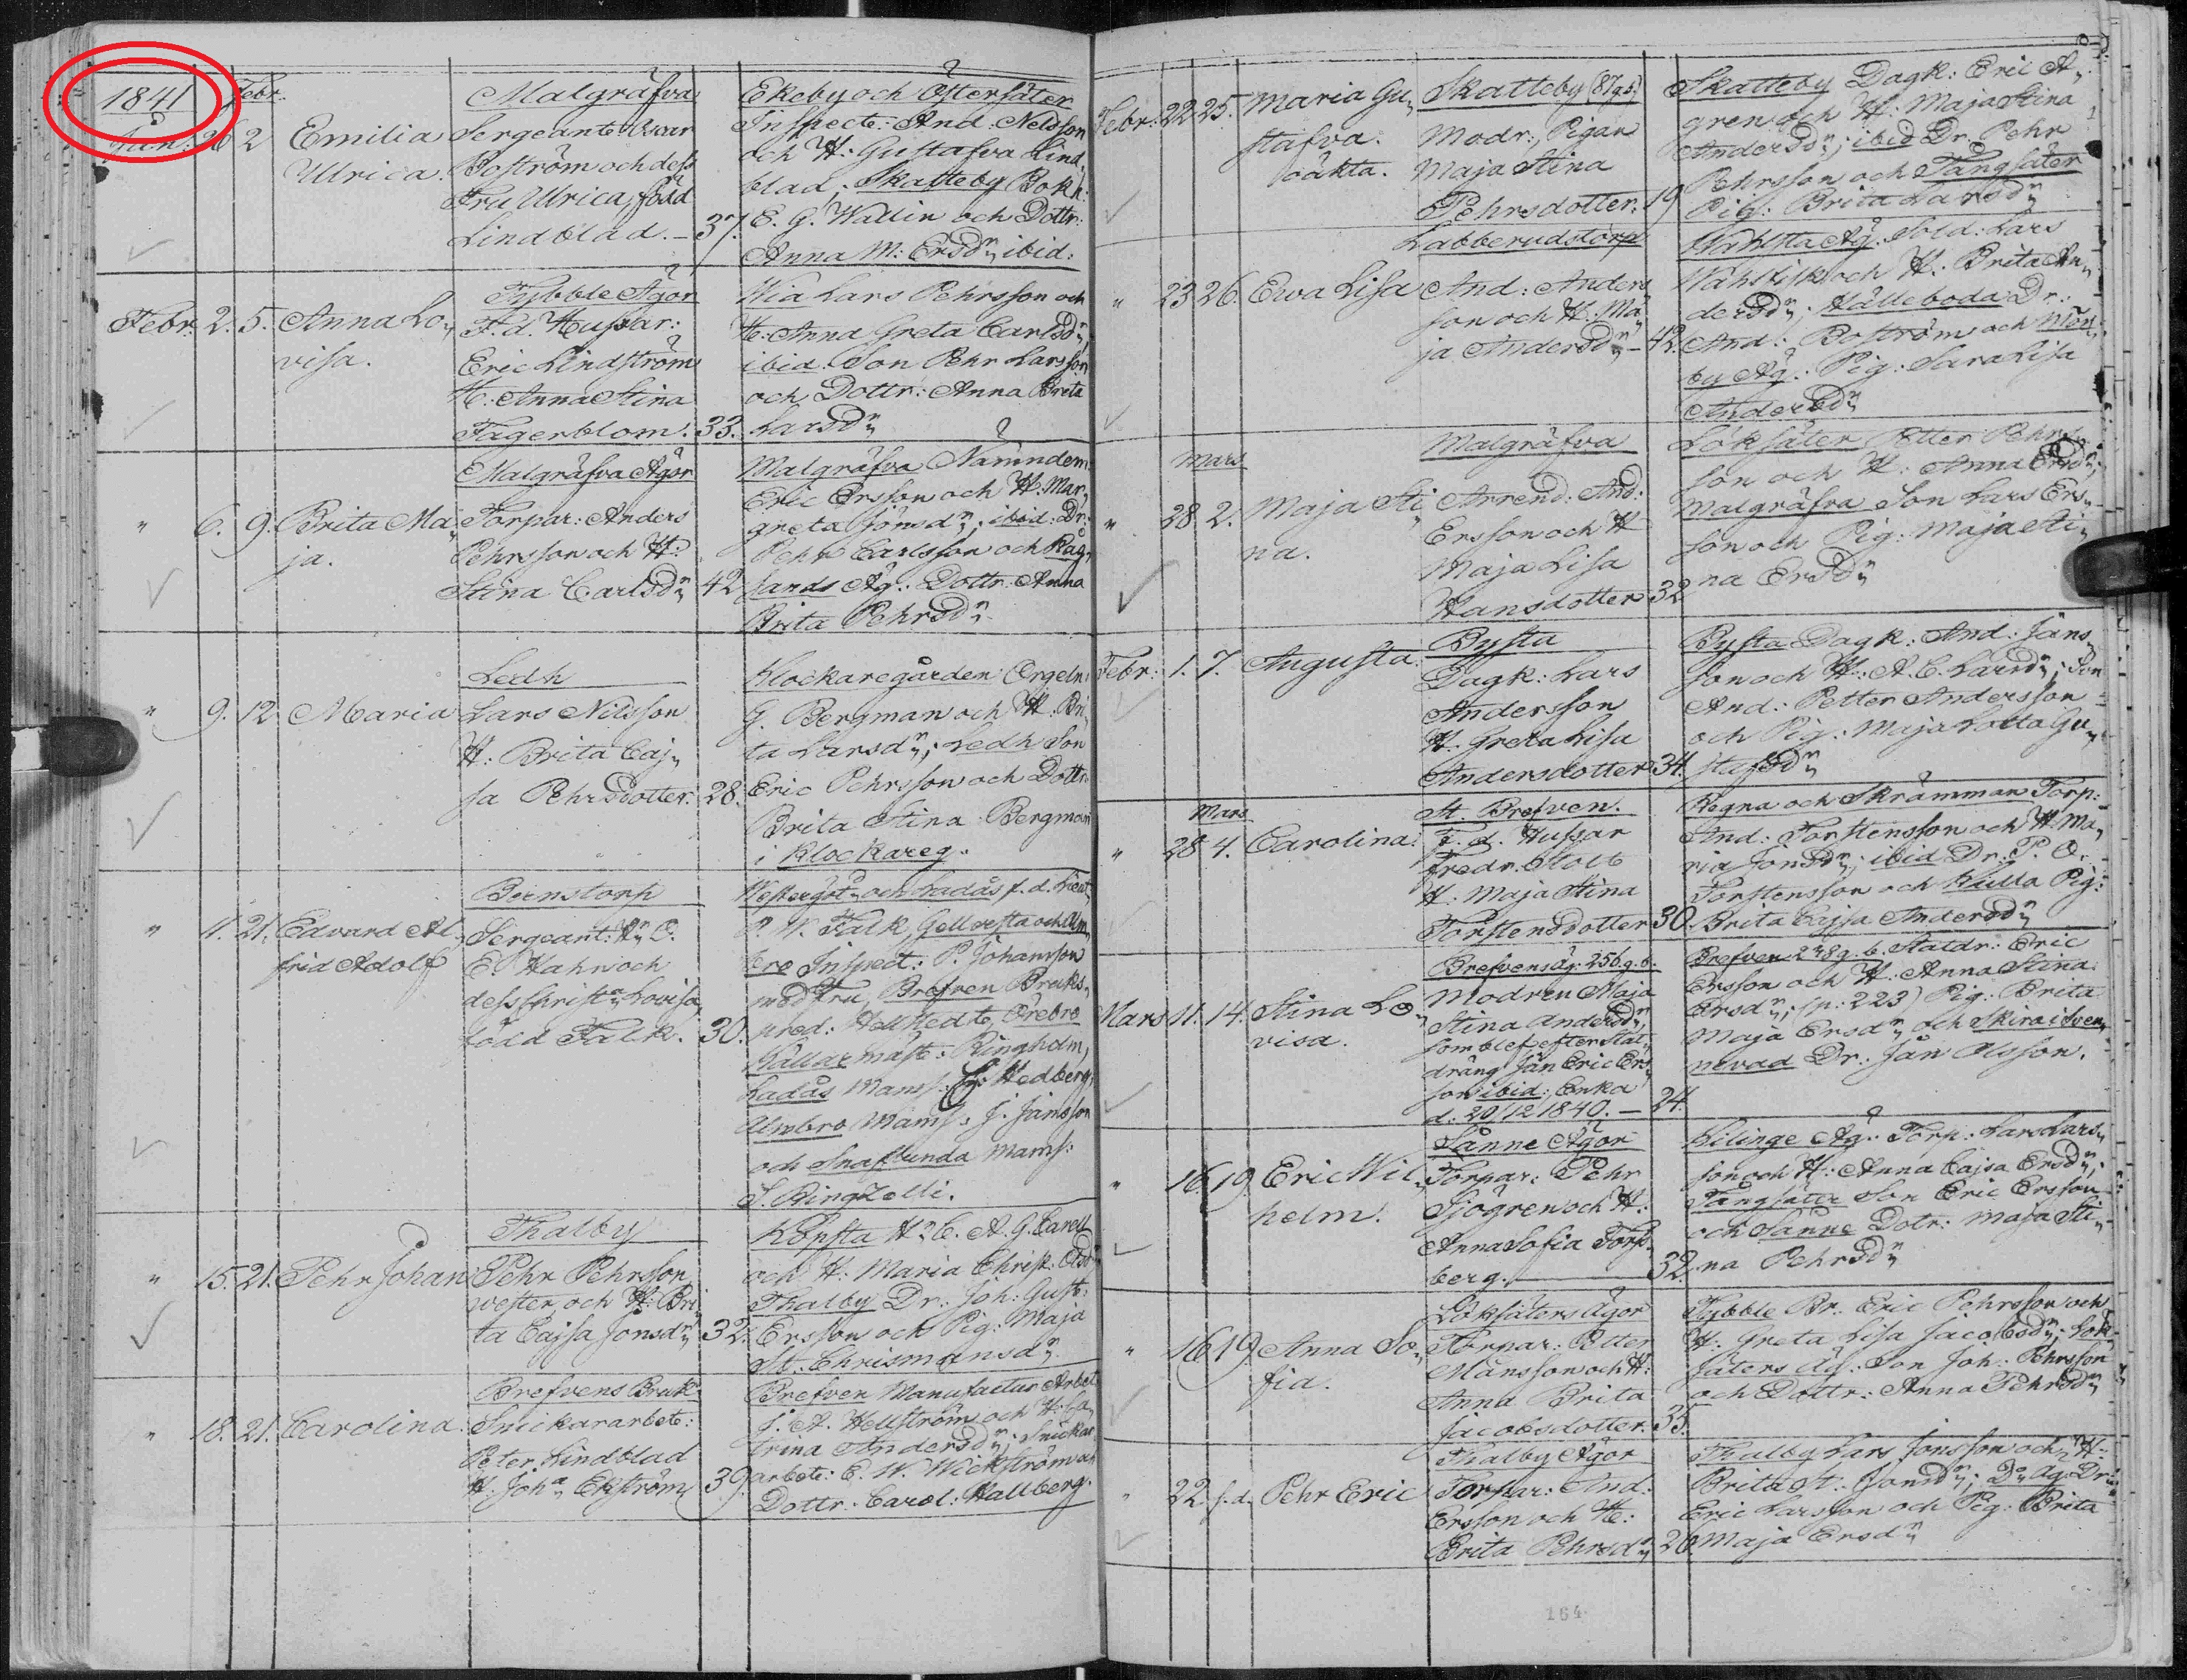 1841
Jan: 26 2 Emilia
Febr.
Ulrica.
Malgräfva
Sergeanten Oscar
Boström och dess
Fru Ulrica, född
Lindblad. — 37.
Ekeby och Östersäter
Inspect: And: Nelsson
och H: Gustafva Lind„
blad; Skatteby Bokh:
E. G. Wallin och Dottr:
Anna M: Ersdr„ ibid:
Febr: 2. 5. Anna Lo„
visa.
Tybble Ägor
F. d. Hussar:
Eric Lindström
H: Anna Stina
Fagerblom: 33.
Wia Lars Pehrsson och
H: Anna Greta Carlsdr„
ibid. Son Pehr Larsson
och Dottr: Anna Greta
Larsdr„
„ 6. 9. Brita Ma„
ja.
Malgräfva Ägor
Torpar: Anders
Pehrsson och H:
Stina Carlsdr„ 42
Malgräfva Nämndem:
Eric Ersson och H: Mar„
greta Jönsdr„; ibid: Dr:
Pehr Carlsson och
Äg: Dottr: Anna
Brita Pehrsdr„
„ 9. 12 Maria
Ledh
Lars Nilsson
H: Brita Caj„
sa Pehrsdotter: 28.
Klockaregården Orgeln:
G. Bergman och H: Bri„
ta Larsdr„; Ledh Son
Eric Pehrsson och Dottr:
Brita Stina Bergman
i Klockareg.
„ 11. 21. Edvard Al„
frid Adolf
Bernstorp
Sergeant:
E. Hahn och
dess Christa Lovisa,
född Falk. 30.
och Ladås f. d. Lieut:
P. W. Falk,
Inspect: P. Johansson
med Fru, Brefven Bruks„
pred: Hellstedt, Örebro
Källarmäst: Ringholm,
Ladås Mams: Hedberg,
Almbro Mams: J. Jansson
och Snaflunda Mams:
S. Ringzelli.
„ 15. 21. Pehr Johan
Thalby
Pehr Pehrsson
wester, och H: Bri„
ta Cajsa Jonsdr„ 32.
A. G.
och H: Maria Christ:
Thalby Dr: Joh: Gust:
Ersson och Pig: Maja
St. Chrismansdr„
„ 18. 21. Carolina
Brefvens Bruk
Snickararbete:
Peter Lindblad
H: Joha„ Ekström 39.
Brefven Manufactur Arbet
J. A. Hellström och H: Ca„
trina Andersdr„; Snickar„
arbete: E. W. Wickström och
Dottr: Carol: Hallberg.
Febr: 22 25. Maria Gu„
stafva.
oäkta.
Skatteby (87 g. 5)
Modr: Pigan
Maja Stina
Pehrsdotter: 19
Skatteby Dagk: Eric A„
gren och H: Maja Stina
Andersdr„; ibid Dr: Pehr
Pehrsson och Tångsäter
Pig: Brita Larsdr„
„ 23 26. Ewa Lisa
Labberudstorp
And: Anders„
son och H: Ma„
ja Andersdr„ — 42.
Äg. Sold: Lars
och H: Brita An„
dersdr„; Hälleboda Dr:
And: Boström och Mön„
by Äg: Pig: Sara Lisa
Andersdr„
Mars
„ 28 2. Maja Sti„
na.
Malgräfva
Arrend: And:
Ersson och H
Maja Lisa
Hansdotter 32
Löksäter Petter Pehrs„
son och H: Anna Ersdr„;
Malgräfva Son Lars Ers„
son och Pig: Maja Sti„
na Ersdr„
Febr: 1. 7. Augusta
Bysta
Dagk: Lars
Andersson
H. Greta Lisa
Andersdotter 34.
Bysta Dagk: And: Jäns„
son och H: A. C. Larsdr„; Son
And: Petter Andersson
och Pig: Maja Lotta Gu„
stafsdr„
Mars
„ 28 4. Carolina
St. Brefven.
F. d. Hussar
Fredr: Stolt
H: Maja Stina
Torstensdotter 30.
Regna och Skrämman Torp:
And: Torstensson och H: Ma„
ria Jonsdr„; ibid Dr: P. O.
Torstensson och Kulla Pig:
Brita Cajsa Andersdr„
Mars 11. 14. Stina Lo„
visa.
Brefvens äg: 256. g. 6.
Modren Maja
Stina Andersdr„,
som blef efter Stat„
dräng Jan Eric Ers„
son ibid: Enka
d: 20/12 1840. — 24.
Brefven 248 g. 6. Statdr: Eric
Ersson och H: Anna Stina
Ersdr„; (p: 223) Pig: Brita
Maja Ersdr„ och Skira i Sven„
nevad Dr: Jan Olsson.
„ 16. 19 Eric Wil„
helm.
Sånne Ägor
Torpar: Pehr
Sjögren och H:
Anna Sofia Fors„
berg. — 32.
Kilinge Äg: Torp: Lars Lars„
son och H: Anna Cajsa Ersdr„;
Tångsäter Son Eric Ersson
och Sånne Dotr: Maja Sti„
na Pehrsdr„
„ 16 19. Anna So„
fia.
Löksäters ägor
Torpar: Petter
Månsson och H:
Anna Brita
Jacobsdotter: 35.
Tybble Br. Eric Pehrsson och
H: Greta Lisa Jacobsdr„; Lök„
säters Äg: Son Joh: Pehrsson
och Dottr: Anna Pehrsdr„
„ 22. s. d. Pehr Eric
Thalby Ägor
Torpar: And:
Ersson och H:
Brita Pehrsdr„ 26
Thalby Lars Jonsson och H:
Brita St. Jonsdr„; Do Äg: Dr:
Eric Larsson och Pig: Brita
Maja Ersdr„
164